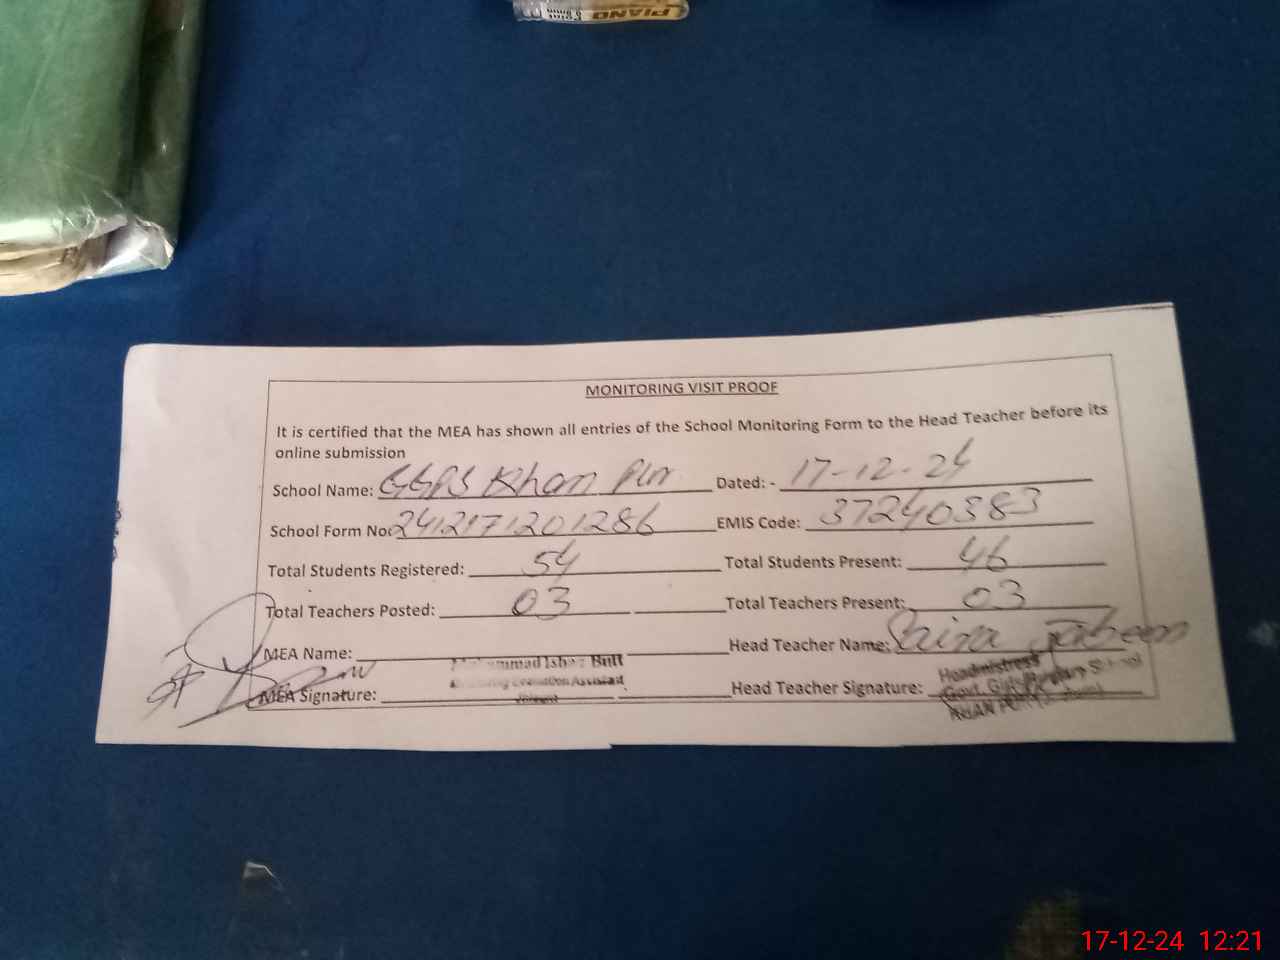 PIANO
MONITORING VISIT PROOF
It is certified that the MEA has shown all entries of the School Monitoring Form to the Head Teacher before its
online submission
School Name: GGPS Khan Pur Dated: - 17-12-24
School Form No: 241217201286 EMIS Code: 37240383
Total Students Registered: 54 Total Students Present: 46
Total Teachers Posted: 03 Total Teachers Present: 03
MEA Name: Head Teacher Name:
Butt
Assistant
Headmistress
MEA Signature: Head Teacher Signature:
Govt. Girls School
KHAN PUR
17-12-24 12:21